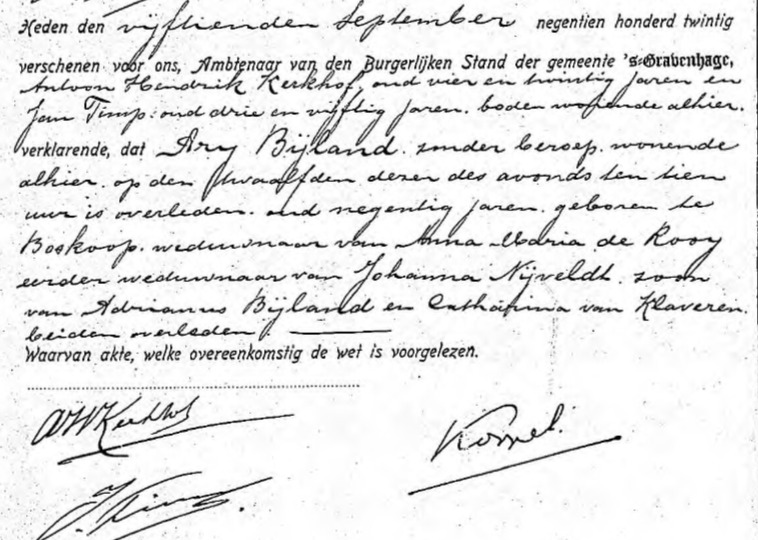 Heden den vijftienden September negentien honderd twintig
verschenen voor ons, Ambtenaar van den Burgerlijken Stand der gemeente 's-Gravenhage,
Antoon Hendrik Kerkhof, oud vier en twintig jaren en
Jan Timp: oud drie en vijftig jaren. boden wonende alhier.
verklarende, dat Ary Bijland. zonder beroep. wonende
alhier. op den twaalfden dezer des avonds ten tien
uur is overleden. oud negentig jaren. geboren te
Boskoop. weduwnaar van Anna Maria de Rooy
eerder weduwnaar van Johanna Nijveldt. zoon
van Adrianus Bijland en Catharina van Klaveren.
beiden overleden
Waarvan akte, welke overeenkomstig de wet is voorgelezen.
AHKerkhof